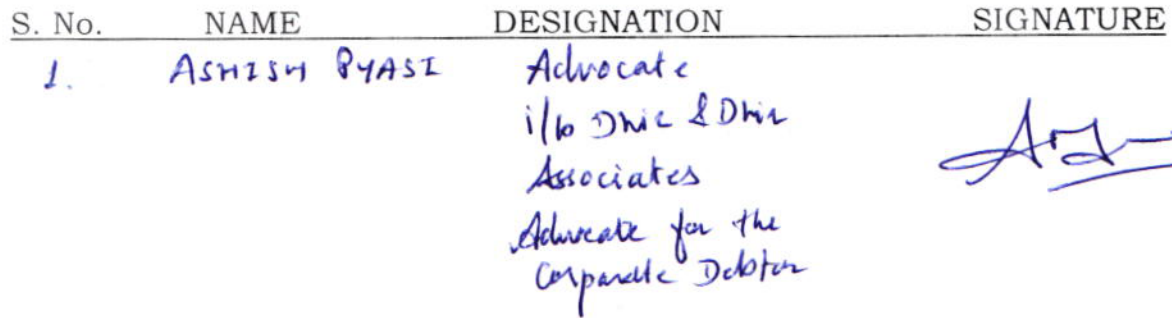 S. No. NAME DESIGNATION SIGNATURE
1. ASHISH PYASI Advocate
i/b Dhir & Dhir
Associates
Advocate for the
Corporate Debtor